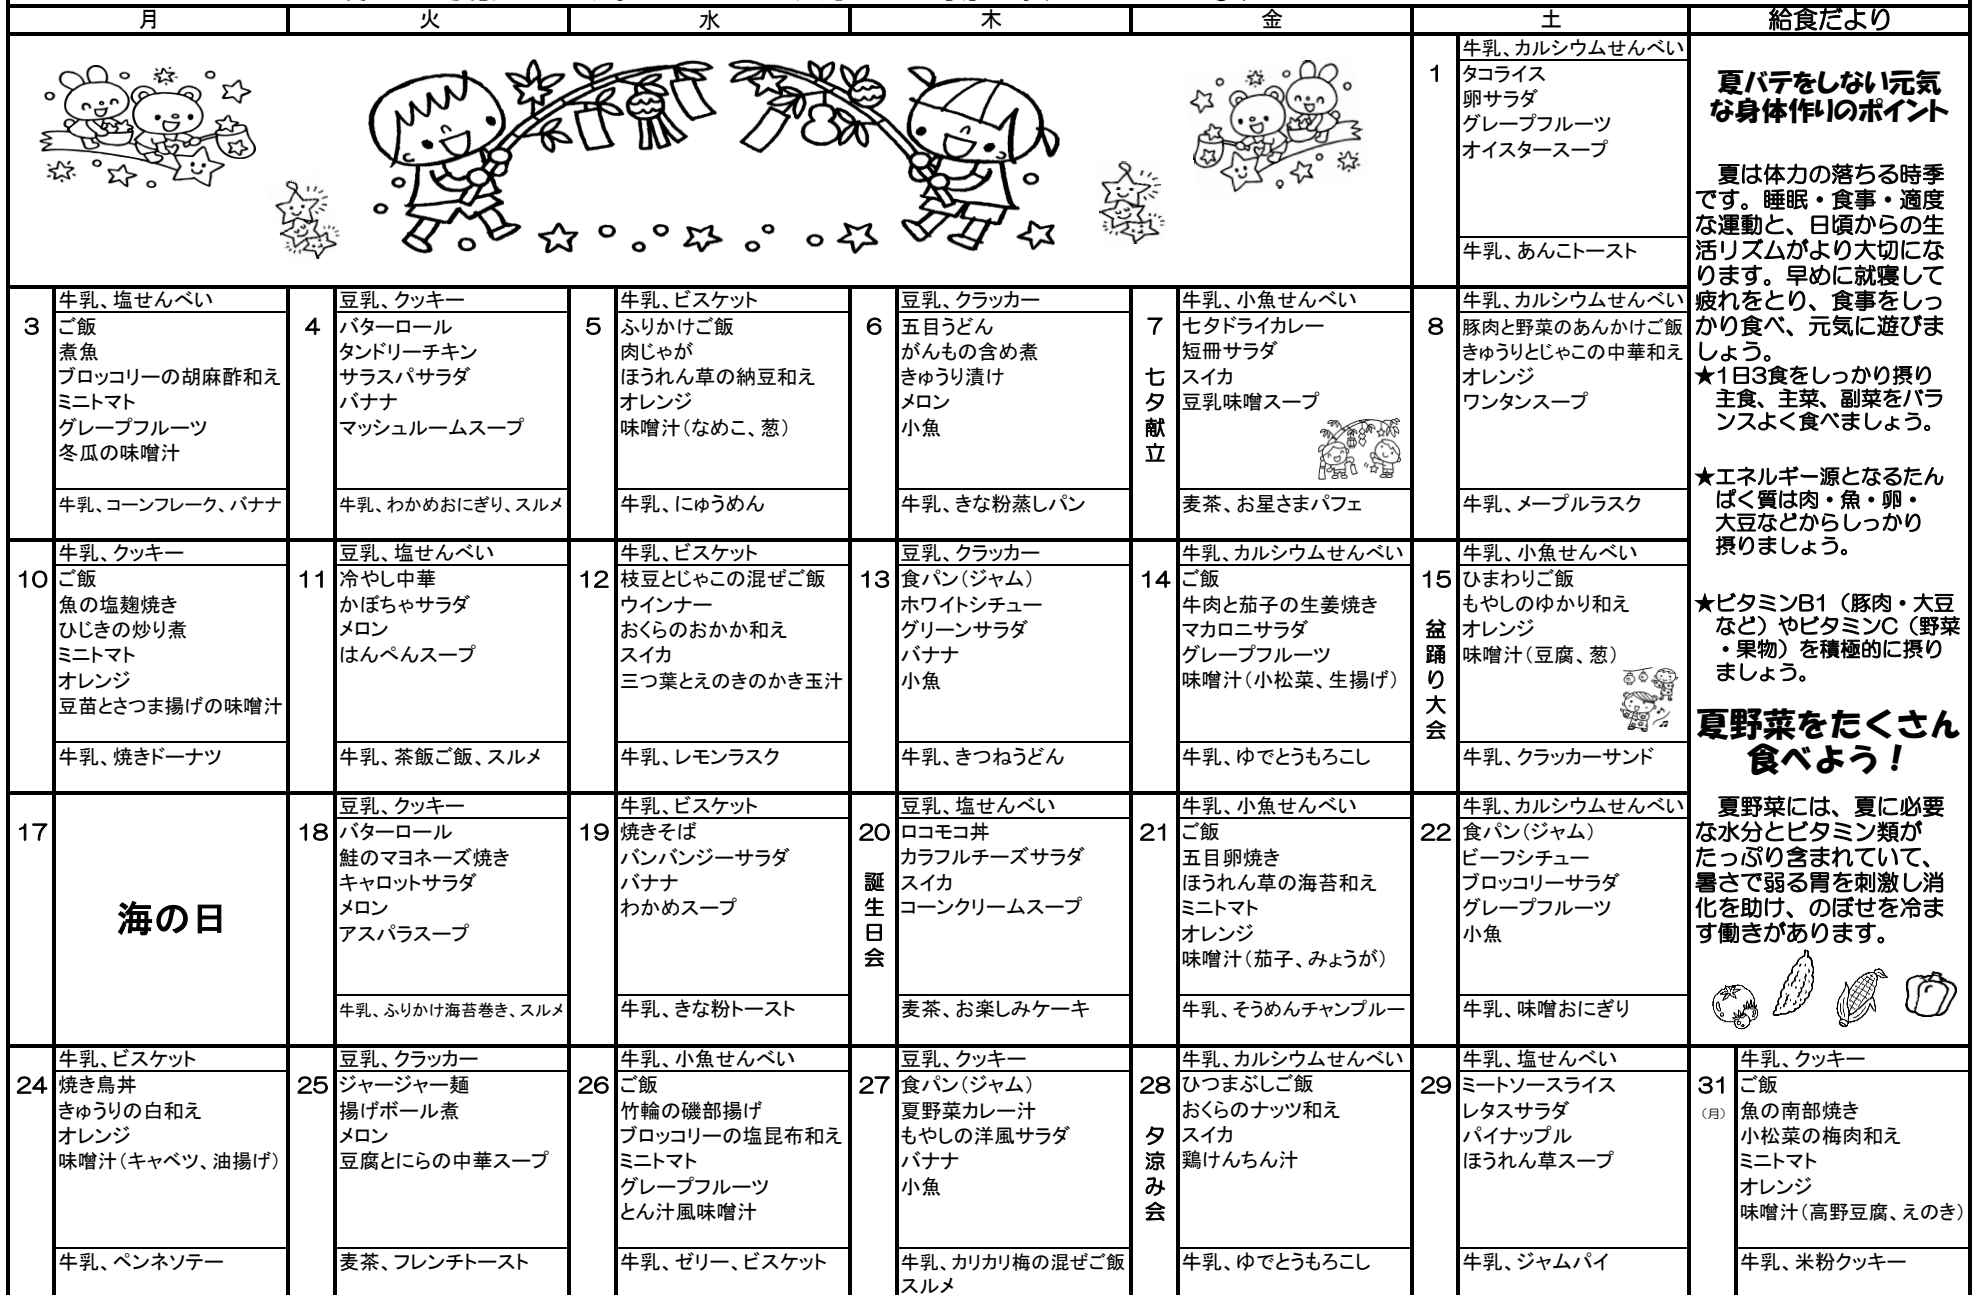 月
火
水
木
金
土
給食だより
1
牛乳、カルシウムせんべい
タコライス
卵サラダ
グレープフルーツ
オイスタースープ
牛乳、あんこトースト
3
牛乳、塩せんべい
ご飯
煮魚
ブロッコリーの胡麻酢和え
ミニトマト
グレープフルーツ
冬瓜の味噌汁
牛乳、コーンフレーク、バナナ
4
豆乳、クッキー
バターロール
タンドリーチキン
サラスパサラダ
バナナ
マッシュルームスープ
牛乳、わかめおにぎり、スルメ
5
牛乳、ビスケット
ふりかけご飯
肉じゃが
ほうれん草の納豆和え
オレンジ
味噌汁（なめこ、葱）
牛乳、にゅうめん
6
豆乳、クラッカー
五目うどん
がんもの含め煮
きゅうり漬け
メロン
小魚
牛乳、きな粉蒸しパン
7
七夕献立
牛乳、小魚せんべい
七夕ドライカレー
短冊サラダ
スイカ
豆乳味噌スープ
麦茶、お星さまパフェ
8
牛乳、カルシウムせんべい
豚肉と野菜のあんかけご飯
きゅうりとじゃこの中華和え
オレンジ
ワンタンスープ
牛乳、メープルラスク
10
牛乳、クッキー
ご飯
魚の塩麹焼き
ひじきの炒り煮
ミニトマト
オレンジ
豆苗とさつま揚げの味噌汁
牛乳、焼きドーナツ
11
豆乳、塩せんべい
冷やし中華
かぼちゃサラダ
メロン
はんぺんスープ
牛乳、茶飯ご飯、スルメ
12
牛乳、ビスケット
枝豆とじゃこの混ぜご飯
ウインナー
おくらのおかか和え
スイカ
三つ葉とえのきのかき玉汁
牛乳、レモンラスク
13
豆乳、クラッカー
食パン（ジャム）
ホワイトシチュー
グリーンサラダ
バナナ
小魚
牛乳、きつねうどん
14
牛乳、カルシウムせんべい
ご飯
牛肉と茄子の生姜焼き
マカロニサラダ
グレープフルーツ
味噌汁（小松菜、生揚げ）
牛乳、ゆでとうもろこし
15
盆踊り大会
牛乳、小魚せんべい
ひまわりご飯
もやしのゆかり和え
オレンジ
味噌汁（豆腐、葱）
牛乳、クラッカーサンド
17
海の日
18
豆乳、クッキー
バターロール
鮭のマヨネーズ焼き
キャロットサラダ
メロン
アスパラスープ
牛乳、ふりかけ海苔巻き、スルメ
19
牛乳、ビスケット
焼きそば
バンバンジーサラダ
バナナ
わかめスープ
牛乳、きな粉トースト
20
誕生日会
豆乳、塩せんべい
ロコモコ丼
カラフルチーズサラダ
スイカ
コーンクリームスープ
麦茶、お楽しみケーキ
21
牛乳、小魚せんべい
ご飯
五目卵焼き
ほうれん草の海苔和え
ミニトマト
オレンジ
味噌汁（茄子、みょうが）
牛乳、そうめんチャンプルー
22
牛乳、カルシウムせんべい
食パン（ジャム）
ビーフシチュー
ブロッコリーサラダ
グレープフルーツ
小魚
牛乳、味噌おにぎり
24
牛乳、ビスケット
焼き鳥丼
きゅうりの白和え
オレンジ
味噌汁（キャベツ、油揚げ）
牛乳、ペンネソテー
25
豆乳、クラッカー
ジャージャー麺
揚げボール煮
メロン
豆腐とにらの中華スープ
麦茶、フレンチトースト
26
牛乳、小魚せんべい
ご飯
竹輪の磯部揚げ
ブロッコリーの塩昆布和え
ミニトマト
グレープフルーツ
とん汁風味噌汁
牛乳、ゼリー、ビスケット
27
豆乳、クッキー
食パン（ジャム）
夏野菜カレー汁
もやしの洋風サラダ
バナナ
小魚
牛乳、カリカリ梅の混ぜご飯
スルメ
28
夕涼み会
牛乳、カルシウムせんべい
ひつまぶしご飯
おくらのナッツ和え
スイカ
鶏けんちん汁
牛乳、ゆでとうもろこし
29
牛乳、塩せんべい
ミートソースライス
レタスサラダ
パイナップル
ほうれん草スープ
牛乳、ジャムパイ
31
（月）
牛乳、クッキー
ご飯
魚の南部焼き
小松菜の梅肉和え
ミニトマト
オレンジ
味噌汁（高野豆腐、えのき）
牛乳、米粉クッキー
夏バテをしない元気
な身体作りのポイント
夏は体力の落ちる時季
です。睡眠・食事・適度
な運動と、日頃からの生
活リズムがより大切にな
ります。早めに就寝して
疲れをとり、食事をしっ
かり食べ、元気に遊びま
しょう。
★1日3食をしっかり摂り
主食、主菜、副菜をバラ
ンスよく食べましょう。
★エネルギー源となるたん
ぱく質は肉・魚・卵・
大豆などからしっかり
摂りましょう。
★ビタミンB1（豚肉・大豆
など）やビタミンC（野菜
・果物）を積極的に摂り
ましょう。
夏野菜をたくさん
食べよう！
夏野菜には、夏に必要
な水分とビタミン類が
たっぷり含まれていて、
暑さで弱る胃を刺激し消
化を助け、のぼせを冷ま
す働きがあります。